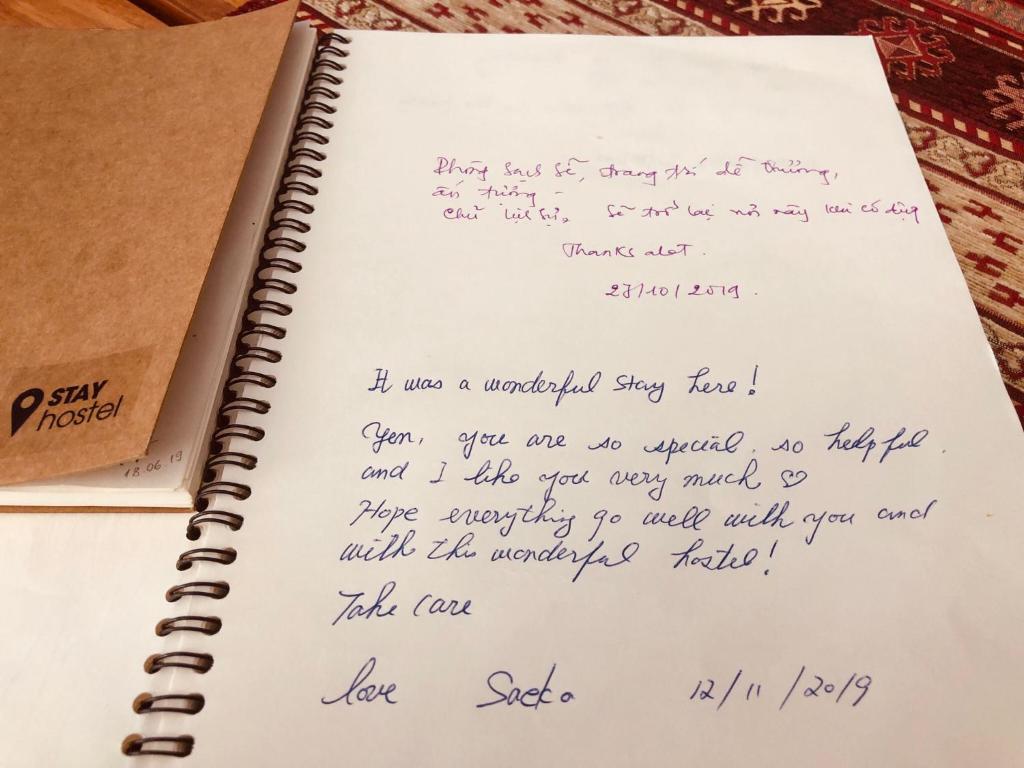 STAY
hostel
18.06.19
Phòng sạch sẽ, trang trí dễ thương,
ấn tượng -
Chủ lịch sự, sẽ trở lại nơi này khi có dịp
Thanks alot.
27/10/2019.
It was a wonderful stay here!
Yen, you are so special, so helpful.
and I like you very much ♡
Hope everything go well with you and
with this wonderful hostel!
Take care
love Saeko 12/11/2019